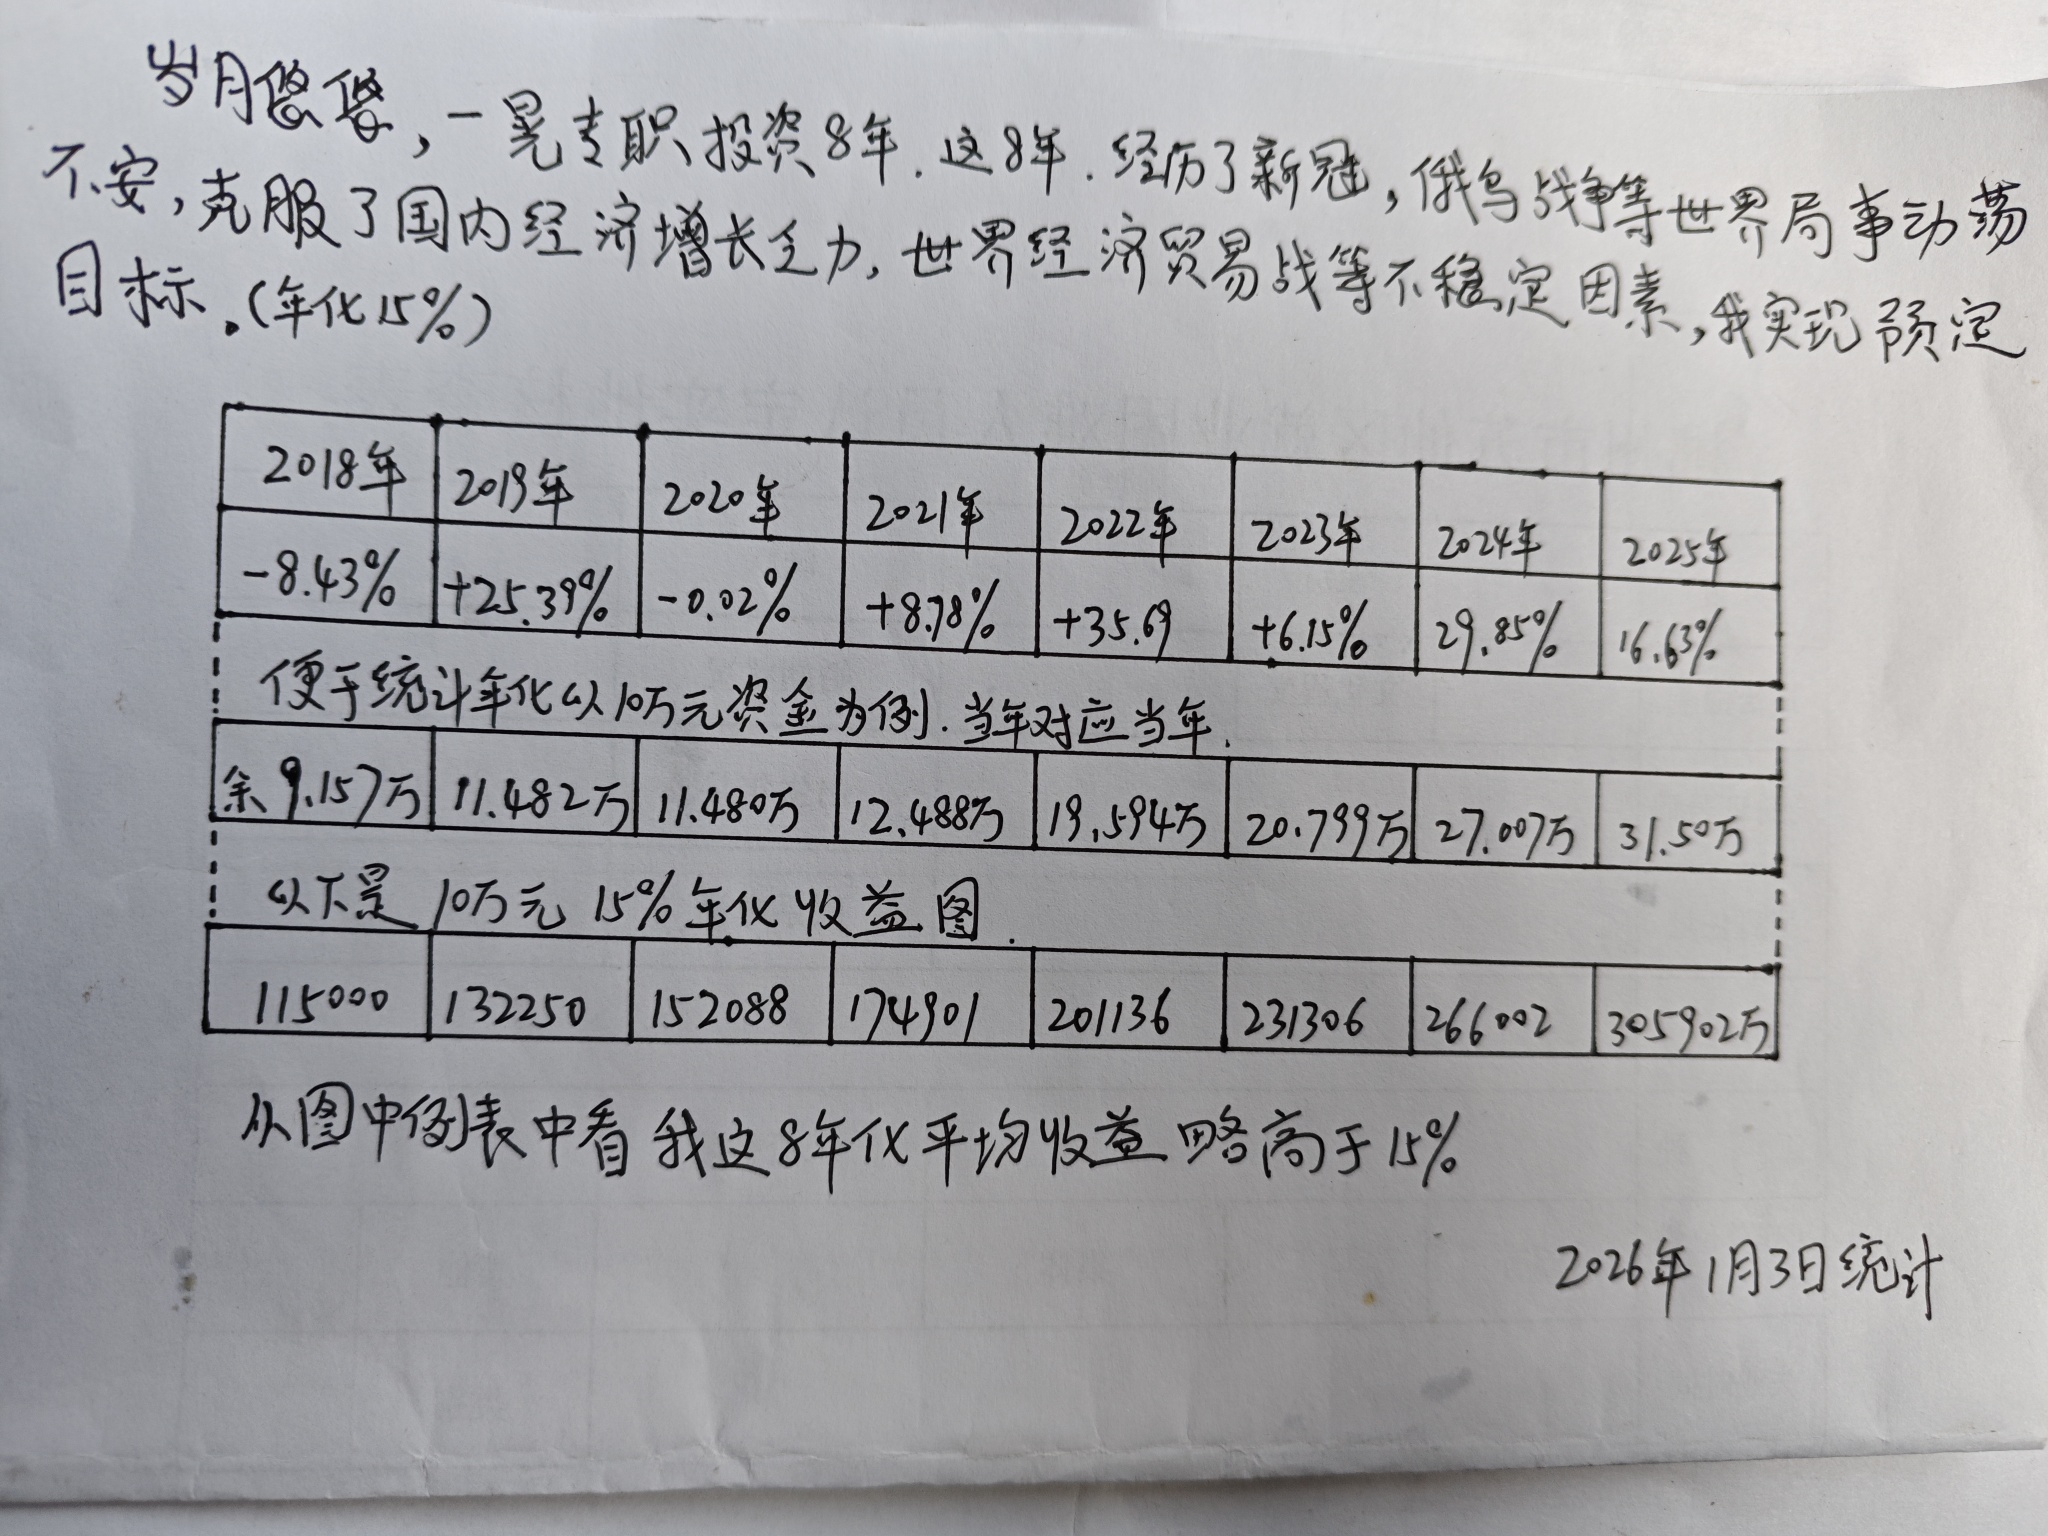 岁月悠悠，一晃专职投资8年．这8年．经历了新冠，俄乌战争等世界局事动荡
不安，克服了国内经济增长乏力，世界经济贸易战等不稳定因素，我实现预定
目标。(年化15%)
2018年 2019年 2020年 2021年 2022年 2023年 2024年 2025年
-8.43% +25.39% -0.02% +8.78% +35.69 +6.15% 29.85% 16.63%
便于统计年化以10万元资金为例．当年对应当年．
余9.157万 11.482万 11.480万 12.488万 19.594万 20.799万 27.007万 31.50万
以下是 10万元 15%年化收益图．
115000 132250 152088 174901 201136 231306 266002 305902万
从图中例表中看我这8年化平均收益略高于15%
2026年1月3日统计